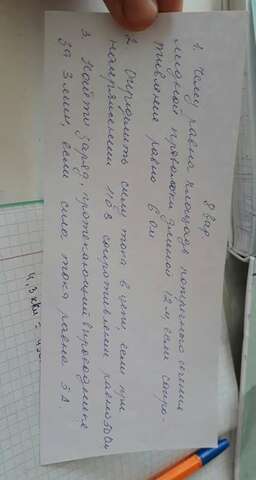 8 вар
1. Чему равна площадь поперечного сечения
медной проволоки длиной 12 м, если сопро-
тивления равно 6 Ом
2. Определить силу тока в цепи, если при
напряжении 110 В сопротивлении равно 50 Ом
3. Найти заряд, протекающий в проводнике
за 3 мин, если сила тока равна 3 А